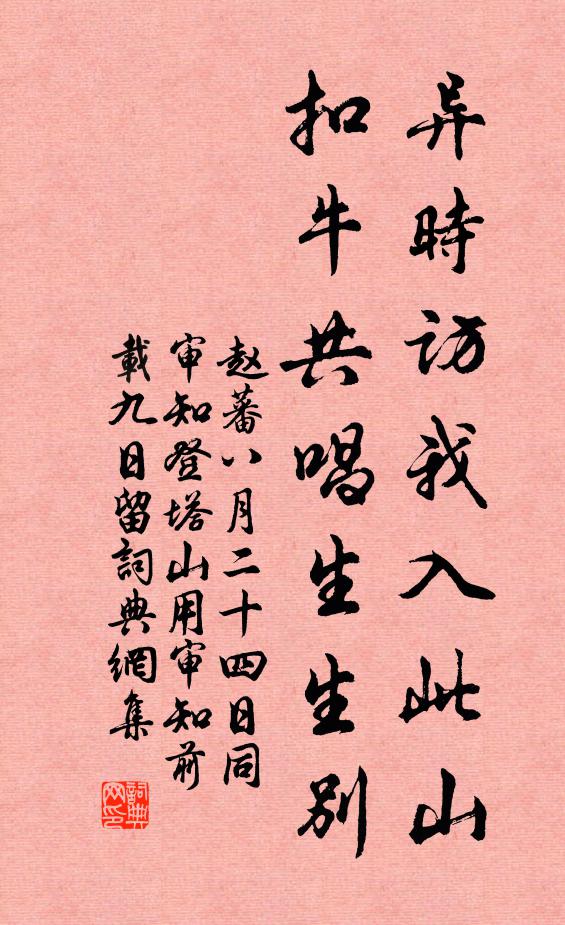 异時访我入此山
扣牛共唱生生别
赵蕃八月二十四日同
审知登塔山用审知前
載九日留詞典網集
詞典
网印